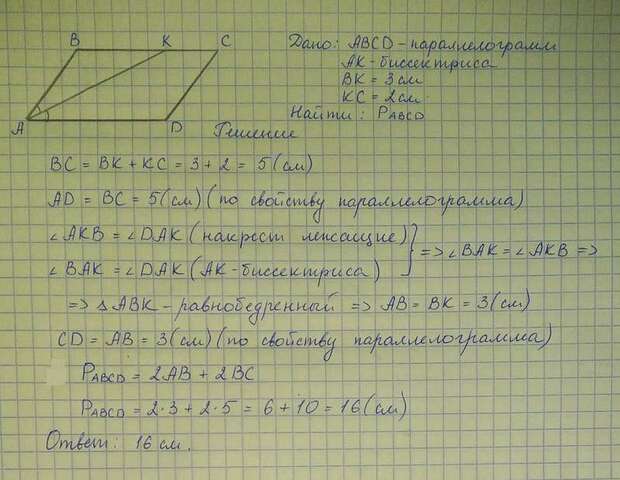 B K C
A D
Дано: ABCD - параллелограмм
AK - биссектриса
BK = 3 см
KC = 2 см
Найти: P_ABCD
Решение
BC = BK + KC = 3 + 2 = 5 (см)
AD = BC = 5 (см) (по свойству параллелограмма)
∠AKB = ∠DAK (накрест лежащие)
∠BAK = ∠DAK (AK - биссектриса) } => ∠BAK = ∠AKB =>
=> △ABK - равнобедренный => AB = BK = 3 (см)
CD = AB = 3 (см) (по свойству параллелограмма)
P_ABCD = 2AB + 2BC
P_ABCD = 2·3 + 2·5 = 6 + 10 = 16 (см)
Ответ: 16 см.